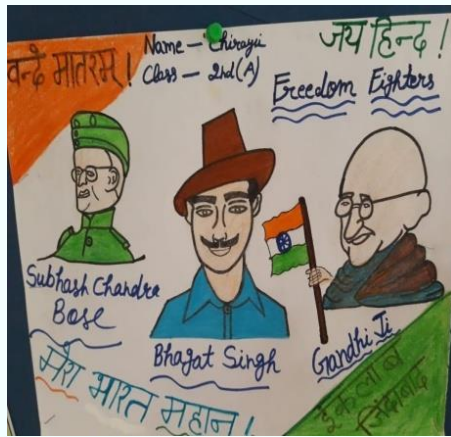 वन्दे मातरम्!
Name - Chirayu
Class - 2nd (A)
जय हिन्द!
Freedom Fighters
Subhash Chandra
Bose
Bhagat Singh
Gandhi Ji
मेरा भारत महान!
इंकलाब
जिंदाबाद